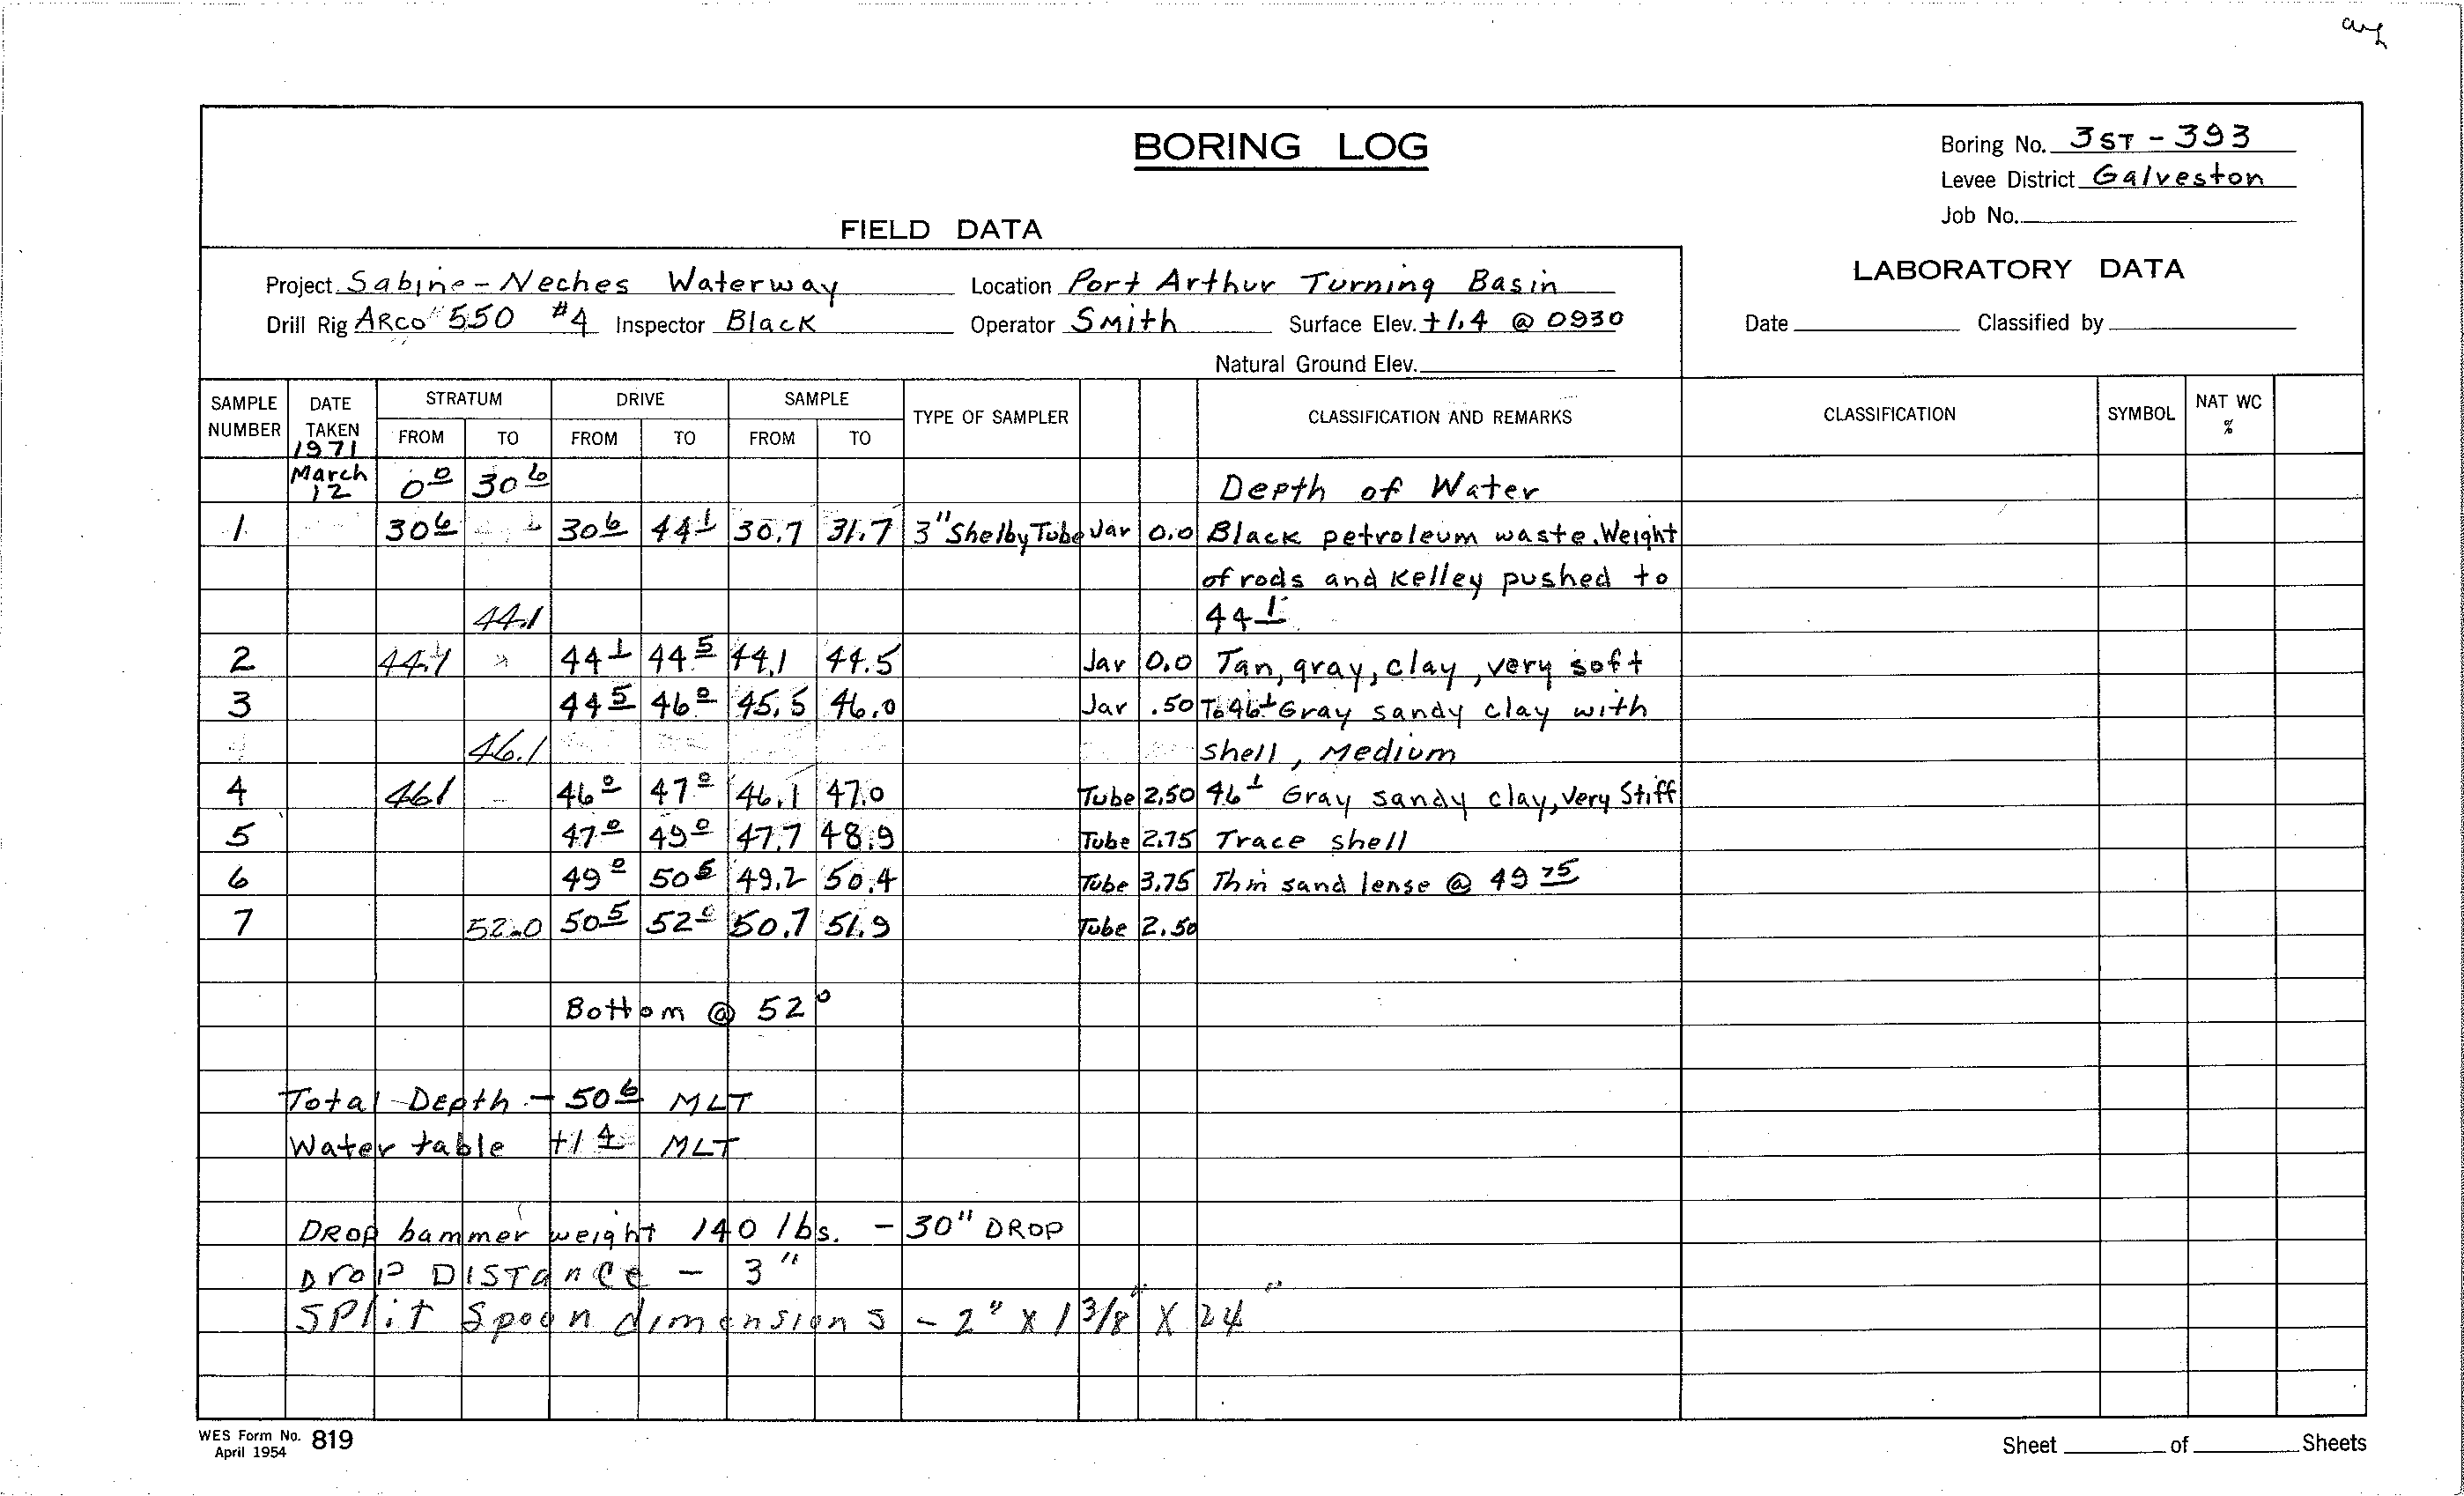 BORING LOG
Boring No. 3ST - 393
Levee District Galveston
Job No.
FIELD DATA
LABORATORY DATA
Project Sabine-Neches Waterway Location Port Arthur Turning Basin
Drill Rig ARCO 550 #4 Inspector Black Operator Smith Surface Elev. +1.4 @ 0930
Date Classified by
Natural Ground Elev.
SAMPLE NUMBER DATE TAKEN STRATUM DRIVE SAMPLE TYPE OF SAMPLER CLASSIFICATION AND REMARKS CLASSIFICATION SYMBOL NAT WC %
FROM TO FROM TO FROM TO
1971
March 12 0 0 30 6 Depth of Water
1 30 6 30 6 44 1 30.7 31.7 3" Shelby Tube Jar 0.0 Black petroleum waste. Weight
of rods and Kelley pushed to
44.1 44 1
2 44.1 44 1 44 5 44.1 44.5 Jar 0.0 Tan, gray, clay, very soft
3 44 5 46 0 45.5 46.0 Jar .50 To 46 1 Gray sandy clay with
46.1 shell, Medium
4 46.1 46 0 47 0 46.1 47.0 Tube 2.50 46 1 Gray sandy clay, Very Stiff
5 47 0 49 0 47.7 48.9 Tube 2.75 Trace shell
6 49 0 50 5 49.2 50.4 Tube 3.75 Thin sand lense @ 49 75
7 52.0 50 5 52 0 50.7 51.9 Tube 2.50
Bottom @ 52 0
Total Depth - 50 6 MLT
Water table +1 4 MLT
Drop hammer weight 140 lbs. - 30" DROP
Drop DISTance - 3"
SPlit Spoon dimensions - 2" X 1 3/8" X 24"
WES Form No. 819
April 1954
Sheet of Sheets